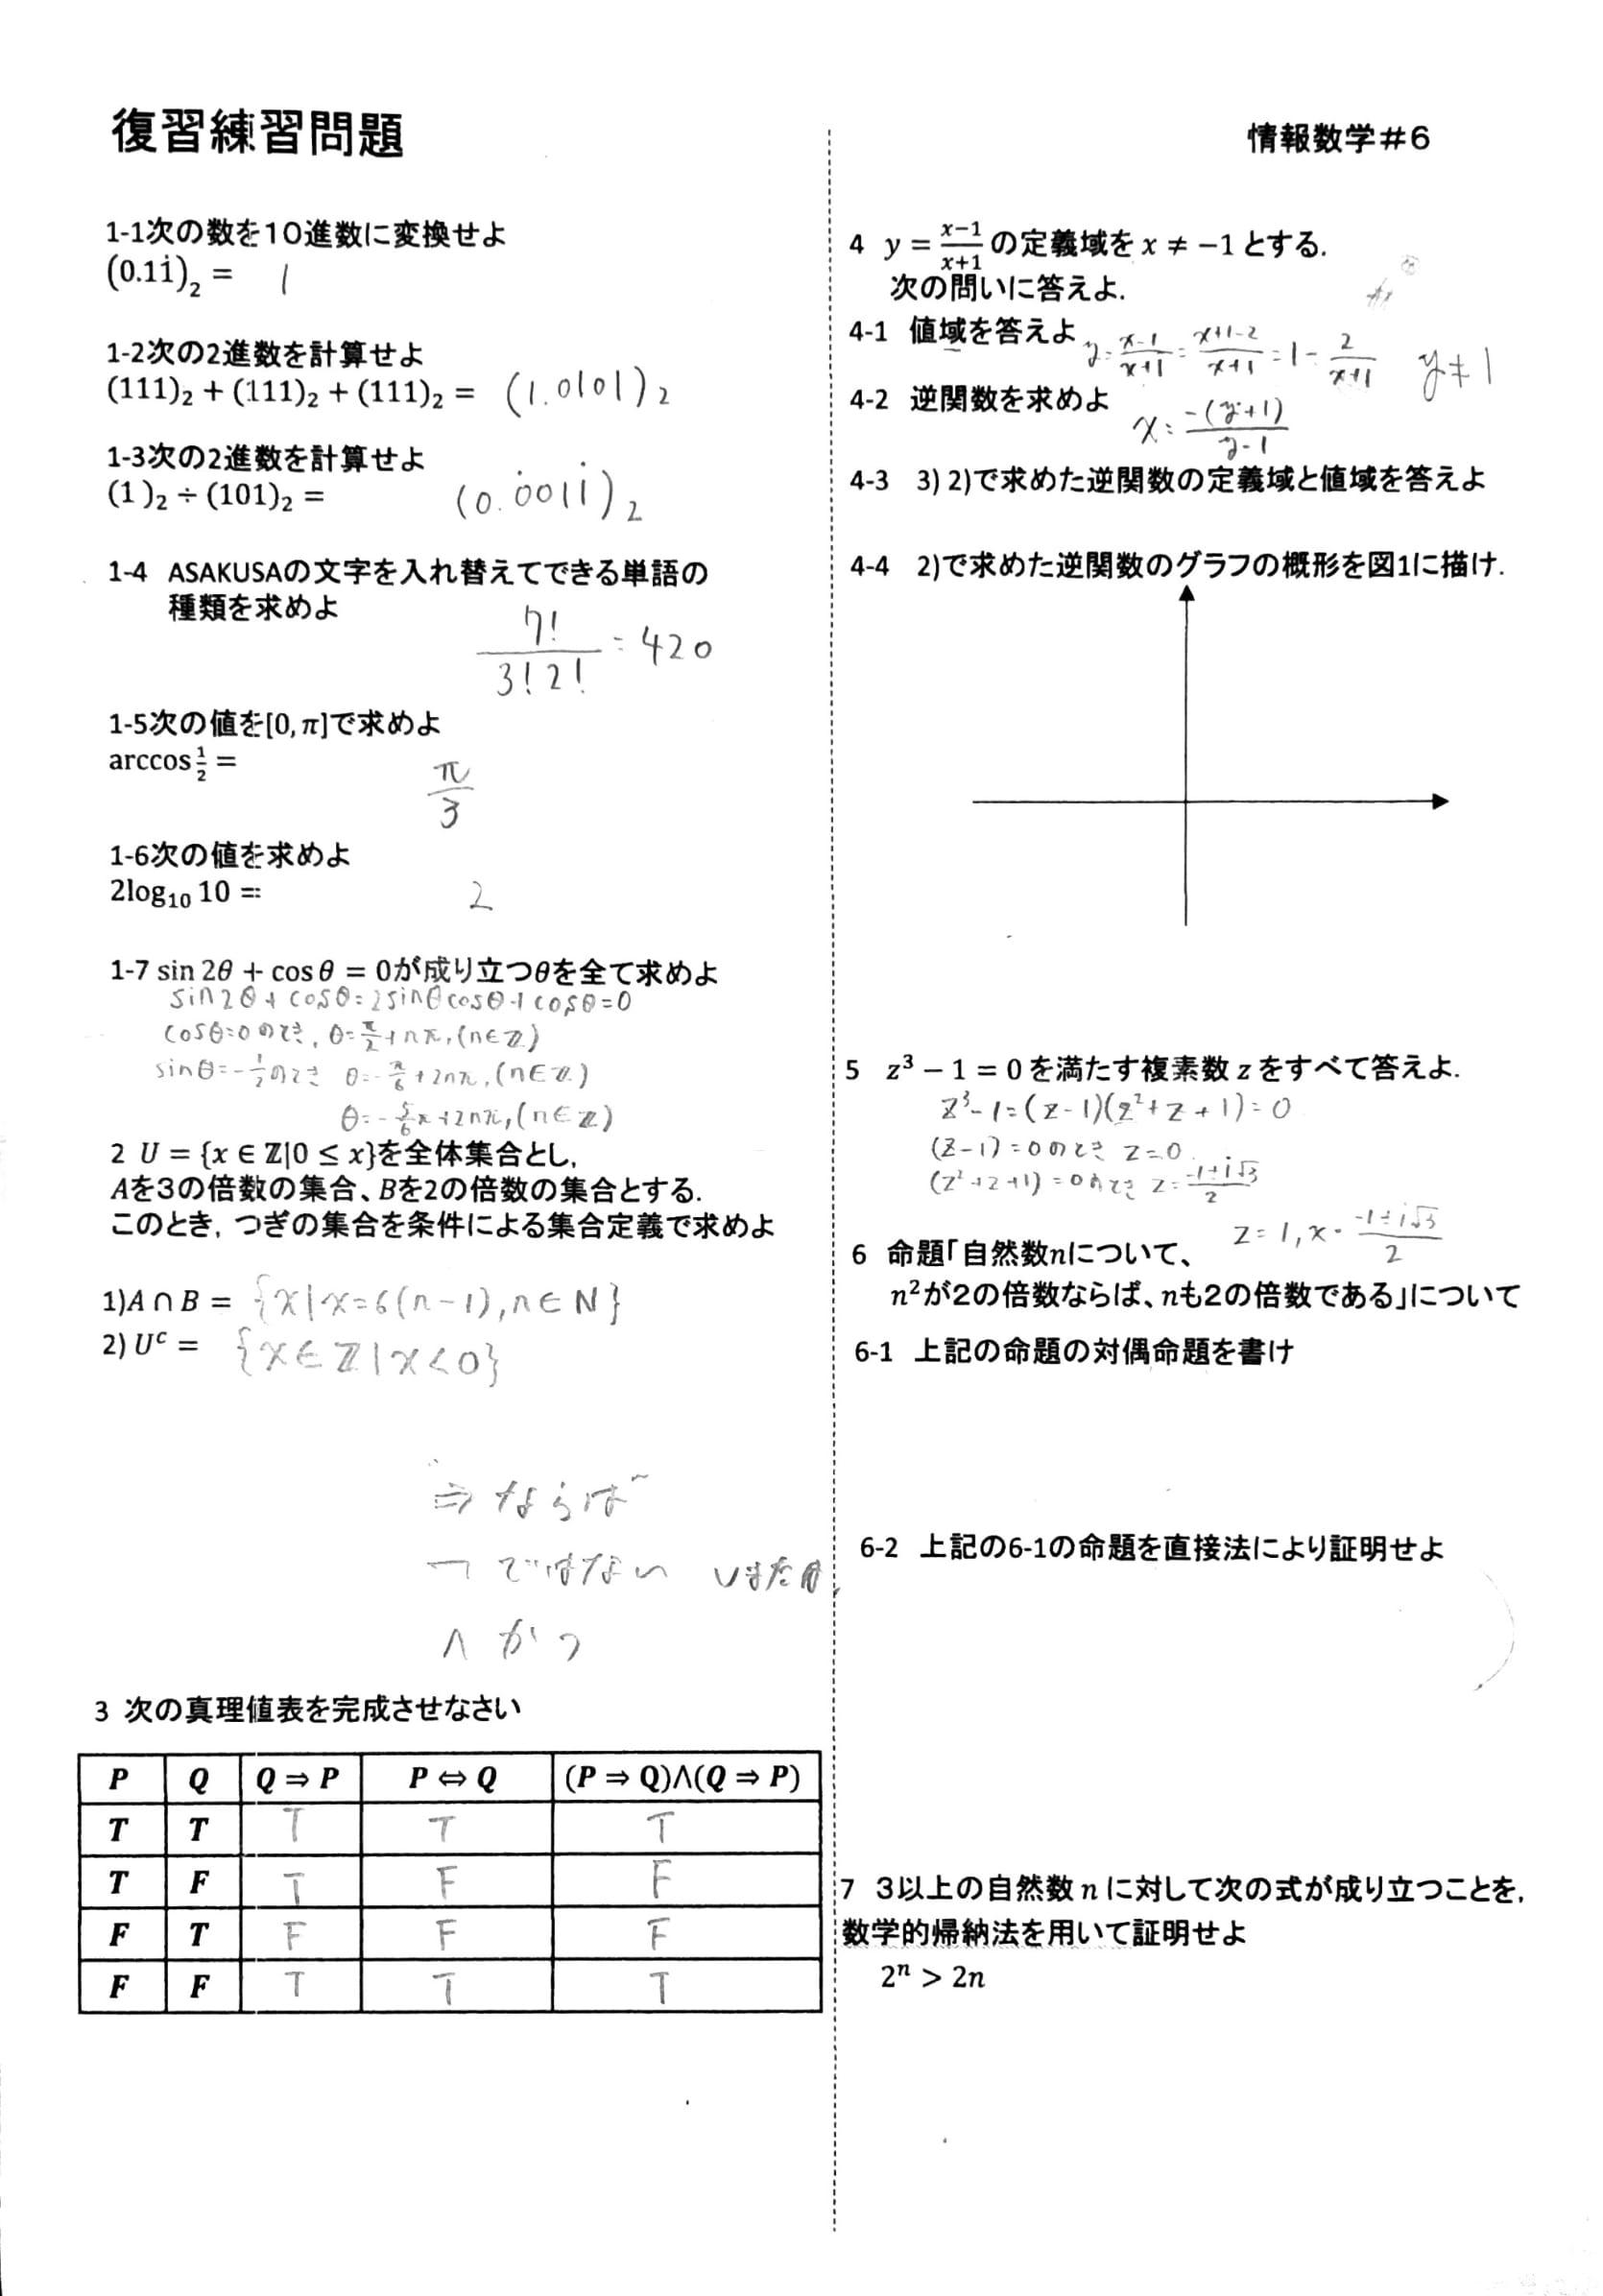 復習練習問題
情報数学#6
1-1次の数を10進数に変換せよ
(0.11̇)₂ = 1
1-2次の2進数を計算せよ
(111)₂ + (111)₂ + (111)₂ = (1.0101)₂
1-3次の2進数を計算せよ
(1)₂ ÷ (101)₂ = (0.0̇011̇)₂
1-4 ASAKUSAの文字を入れ替えてできる単語の
種類を求めよ
7!/3!2! = 420
1-5次の値を[0, π]で求めよ
arccos 1/2 = π/3
1-6次の値を求めよ
2log₁₀ 10 = 2
1-7 sin 2θ + cos θ = 0が成り立つθを全て求めよ
sin2θ + cosθ = 2sinθcosθ + cosθ = 0
cosθ=0のとき, θ=π/2+nπ, (n∈ℤ)
sinθ=-1/2のとき θ=-π/6+2nπ, (n∈ℤ)
θ=-5/6π+2nπ, (n∈ℤ)
2 U = {x ∈ ℤ|0 ≤ x}を全体集合とし,
Aを3の倍数の集合、Bを2の倍数の集合とする.
このとき, つぎの集合を条件による集合定義で求めよ
1)A ∩ B = {x|x=6(n-1), n∈N}
2) Uᶜ = {x∈ℤ|x<0}
⇒ ならば
¬ ではない ∨または
∧ かつ
3 次の真理値表を完成させなさい
P Q Q ⇒ P P ⇔ Q (P ⇒ Q)∧(Q ⇒ P)
T T T T T
T F T F F
F T F F F
F F T T T
4 y = x−1/x+1 の定義域を x ≠ −1 とする.
次の問いに答えよ.
4-1 値域を答えよ y = x-1/x+1 = x+1-2/x+1 = 1 - 2/x+1 y≠1
4-2 逆関数を求めよ x = -(y+1)/y-1
4-3 3) 2)で求めた逆関数の定義域と値域を答えよ
4-4 2)で求めた逆関数のグラフの概形を図1に描け.
5 z³ − 1 = 0 を満たす複素数 z をすべて答えよ.
z³-1=(z-1)(z²+z+1)=0
(z-1)=0のとき z=0
(z²+z+1)=0のとき z=-1±i√3/2
z=1, x=-1±i√3/2
6 命題「自然数nについて、
n²が2の倍数ならば、nも2の倍数である」について
6-1 上記の命題の対偶命題を書け
6-2 上記の6-1の命題を直接法により証明せよ
7 3以上の自然数 n に対して次の式が成り立つことを,
数学的帰納法を用いて証明せよ
2ⁿ > 2n